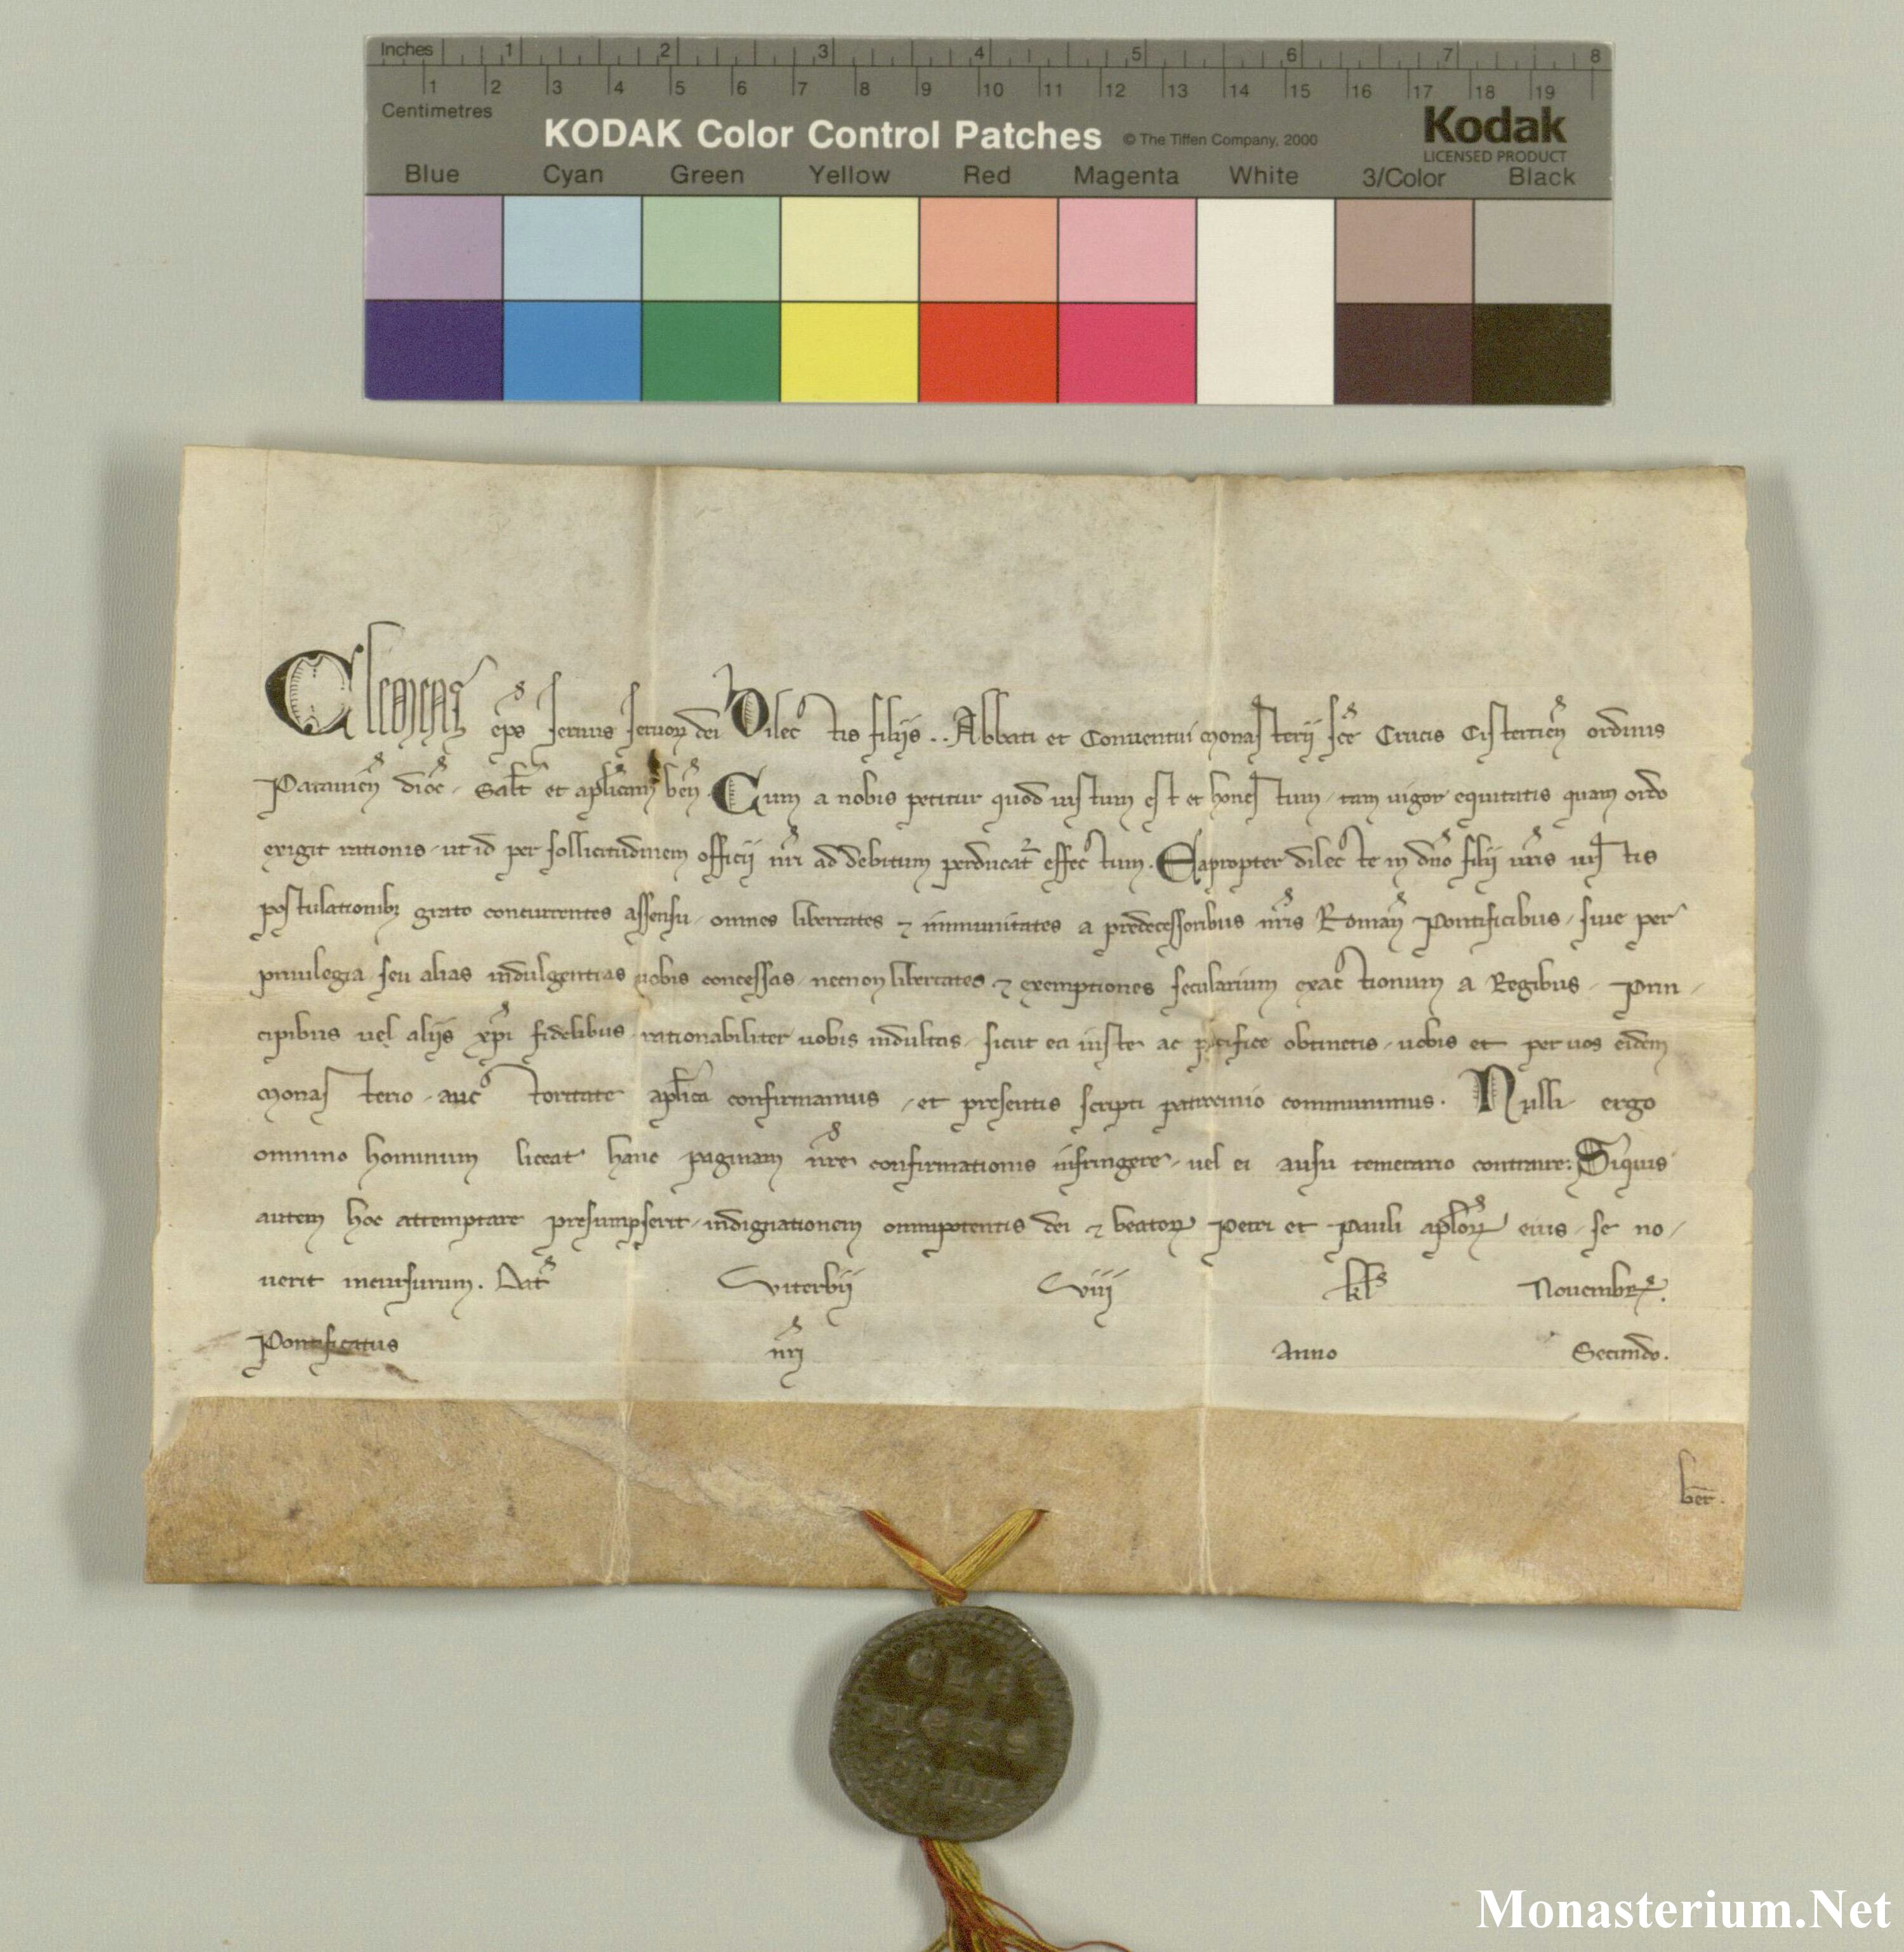 Inches 1 2 3 4 5 6 7 8
1 2 3 4 5 6 7 8 9 10 11 12 13 14 15 16 17 18 19
Centimetres
KODAK Color Control Patches © The Tiffen Company, 2000 Kodak
LICENSED PRODUCT
Blue Cyan Green Yellow Red Magenta White 3/Color Black
Clemens ep̄s seruus seruoꝝ dei Dilectis filijs .. Abbati et Conuentui monasterij sc̄e Crucis Cistercien̄ ordinis
Patauien̄ dioc̄ . Salt̄ et aplīcam ben̄ . Cum a nobis petitur quod iustum est et honestum . tam uigor equitatis quam ordo
exigit rationis . ut id per sollicitudinem officij nr̄i ad debitum perducat̄ effectum . Eapropter dilecte in dn̄o filij ur̄is iustis
postulationibꝫ grato concurrentes assensu . omnes libertates ⁊ immunitates a predecessoribus nr̄is Roman̄ Pontificibus . siue per
priuilegia seu alias indulgentias uobis concessas . necnon libertates ⁊ exemptiones secularium exactionum a Regibus . Prin-
cipibus uel alijs xp̄i fidelibus rationabiliter uobis indultas . sicut ea iuste ac pacifice obtinetis . uobis et per uos eidem
monasterio . auctoritate aplīca confirmamus . et presentis scripti patrocinio communimus . Nulli ergo
omnino hominum liceat hanc paginam nr̄e confirmationis infringere . uel ei ausu temerario contraire : Siquis
autem hoc attemptare presumpserit . indignationem omnipotentis dei ⁊ beatoꝝ Petri et Pauli aplōꝝ eius . se no-
uerit incursurum . Dat̄ Viterbij Viij kl̄s Nouembr̄ .
Pontificatus nr̄i Anno Secundo .
ber̄ .
CLE
MENS
PP IIII
Monasterium.Net